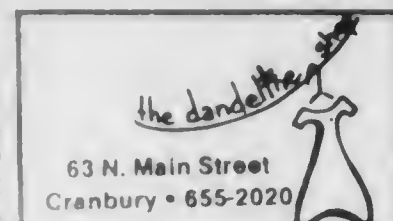 the dandelion shop
63 N. Main Street
Cranbury • 655-2020